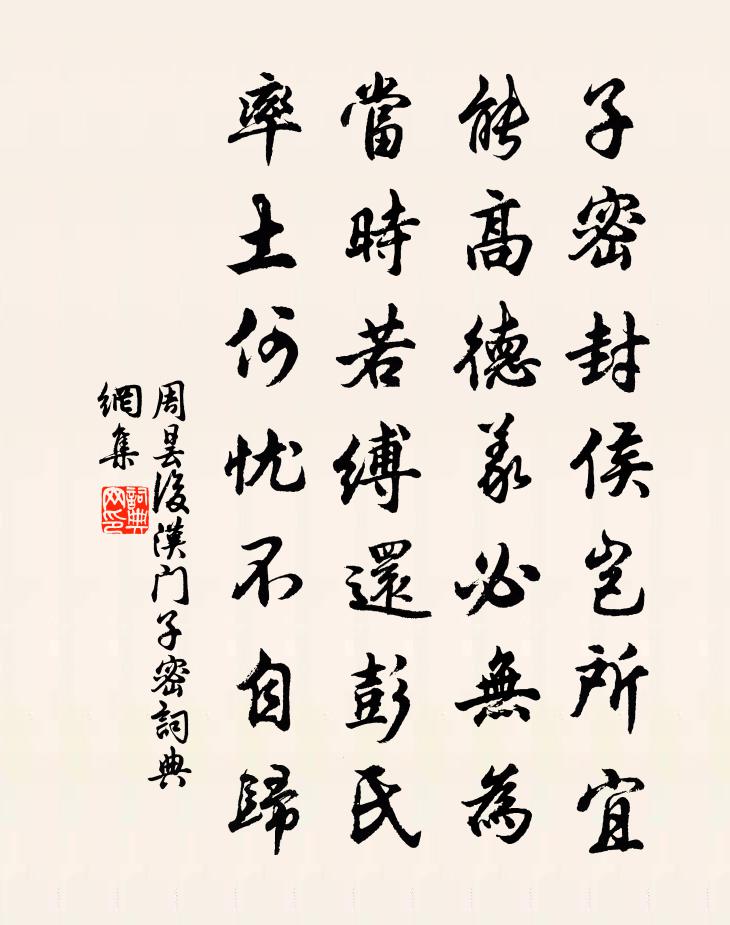 子密封侯岂所宜
能高德義必無為
當時若縛還彭氏
率土何忧不自歸
周曇後漢門子密詞典
網集
詞典
网印